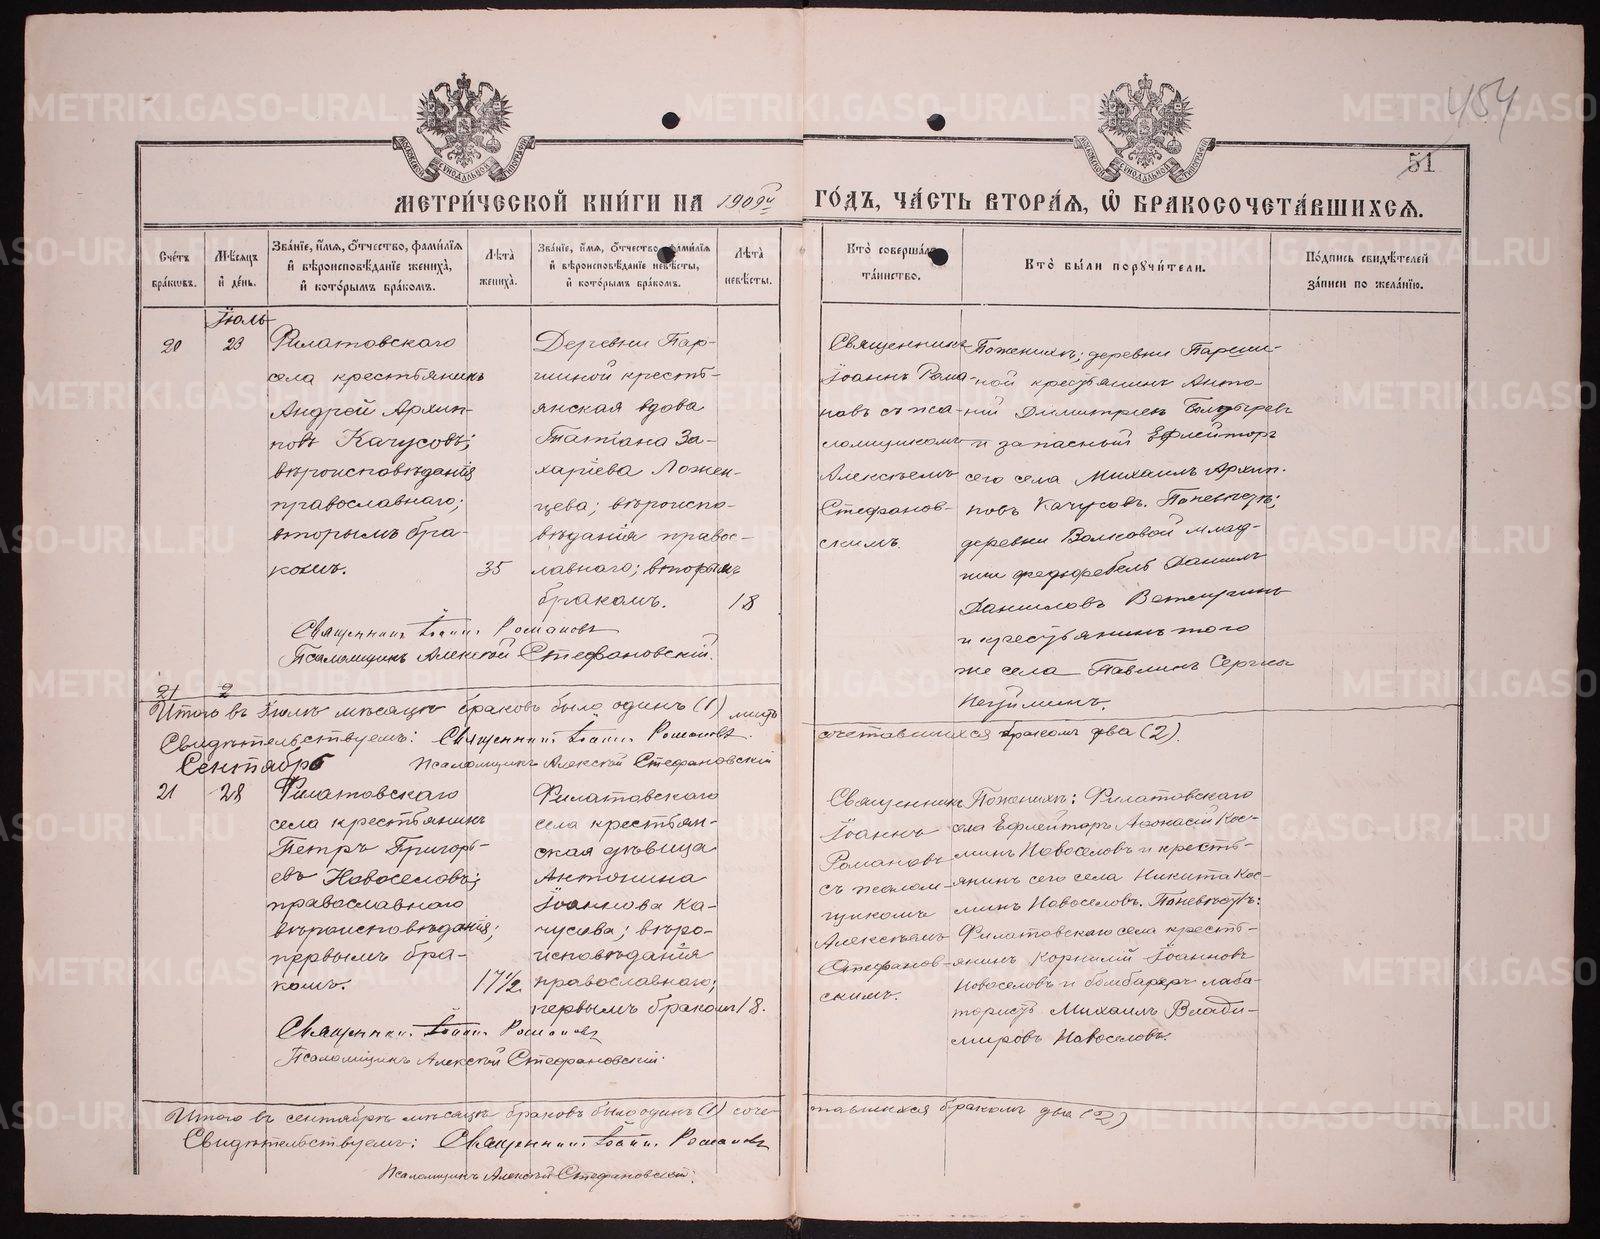 454
51
МЕТРИЧЕСКОЙ КНИГИ НА 1909й ГОДЪ, ЧАСТЬ ВТОРАЯ, Ѡ БРАКОСОЧЕТАВШИХСЯ.
Счетъ браковъ.
Мѣсяцъ и день.
Званіе, имя, отчество, фамилія
и вѣроисповѣданіе жениха,
и которымъ бракомъ.
Лѣта
жениха.
Званіе, имя, отчество, фамилія
и вѣроисповѣданіе невѣсты,
и которымъ бракомъ.
Лѣта
невѣсты.
Кто совершалъ
таинство.
Кто были поручители.
Подпись свидѣтелей
записи по желанію.
Іюль
20
23
Филатовскаго
села крестьянинъ
Андрей Архип-
повъ Качусовъ;
вѣроисповѣданія
православнаго;
вторымъ бра-
комъ.
35
Деревни Пар-
шиной кресть-
янская вдова
Татіана За-
харіева Ложен-
цева; вѣроиспо-
вѣданія правос-
лавнаго; вторымъ
бракомъ.
18
Священникъ
Іоаннъ Рома-
новъ съ пса-
ломщикомъ
Алексѣемъ
Стефанов-
скимъ.
По женихѣ: деревни Парши-
ной крестьянинъ Анто-
ній Димитріев Болдыревъ
и запасный Ефрейторъ
сего села Михаилъ Архип-
повъ Качусовъ. По невѣстѣ:
деревни Волковой млад-
шій федфебель Даніилъ
Даниловъ
и крестьянинъ того
же села Павлинъ
Священникъ Іоаннъ Романовъ
Псаломщикъ Алексѣй Стефановскій.
21
2
Итого въ Іюлѣ мѣсяцѣ браковъ было одинъ (1)
сочетавшихся бракомъ два (2).
Свидѣтельствуемъ: Священникъ Іоаннъ Романовъ.
Псаломщикъ Алексѣй Стефановскій
Сентябрь
21
28
Филатовскаго
села крестьянинъ
Петръ Григорь-
евъ Новоселовъ;
православнаго
вѣроисповѣданія;
первымъ бра-
комъ.
17 1/2
Филатовскаго
села крестьян-
ская дѣвица
Антонина
Іоаннова Ка-
чусова; вѣро-
исповѣданія
православнаго;
первымъ бракомъ
18.
Священникъ
Іоаннъ
Романовъ
съ псалом-
щикомъ
Алексѣемъ
Стефанов-
скимъ.
По женихѣ: Филатовскаго
села Ефрейторъ Аѳонасій Кос-
минъ Новоселовъ и кресть-
янинъ сего села Никита Кос-
минъ Новоселовъ. По невѣстѣ:
Филатовскаго села кресть-
янинъ Корнилій Іоанновъ
Новоселовъ и бомбардиръ лаба-
тористъ Михаилъ Влади-
міровъ Новоселовъ.
Священникъ Іоаннъ Романовъ
Псаломщикъ Алексѣй Стефановскій.
Итого въ сентябрѣ мѣсяцѣ браковъ было одинъ (1) соче-
тавшихся бракомъ два (2)
Свидѣтельствуемъ: Священникъ Іоаннъ Романовъ
Псаломщикъ Алексѣй Стефановскій.
METRIKI.GASO-URAL.RU